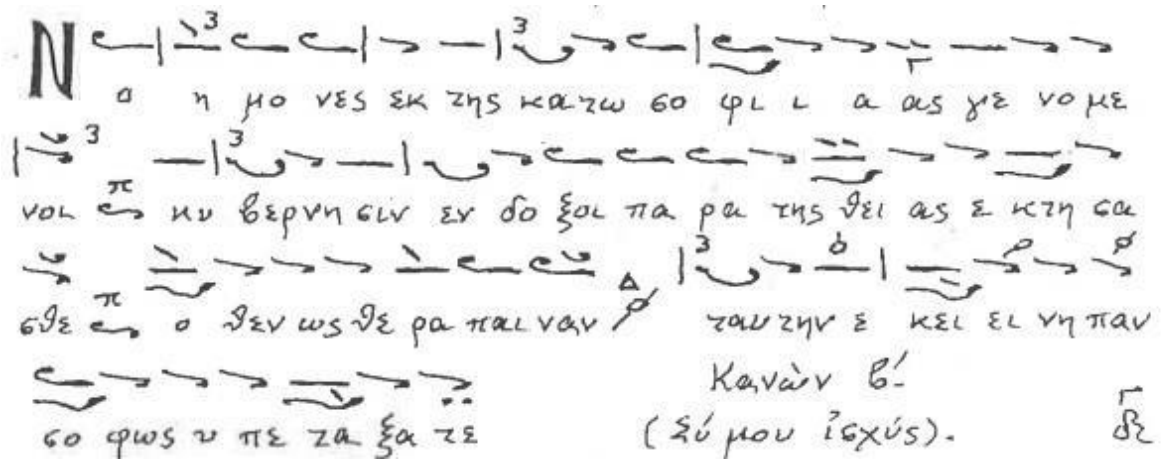 Ν
ο η μο νες εκ της κα τω σο φι ι α ας γε νο με
νοι π κυ βερνη σιν εν δο ξοι πα ρα της θει ας ε κτη σα
σθε π ο θεν ως θε ρα παι ναν Δ ταυ την ε κει ει νη παν
σο φως υ πε τα ξα τε
Κανὼν β΄.
(Σύ μου ἰσχύς).